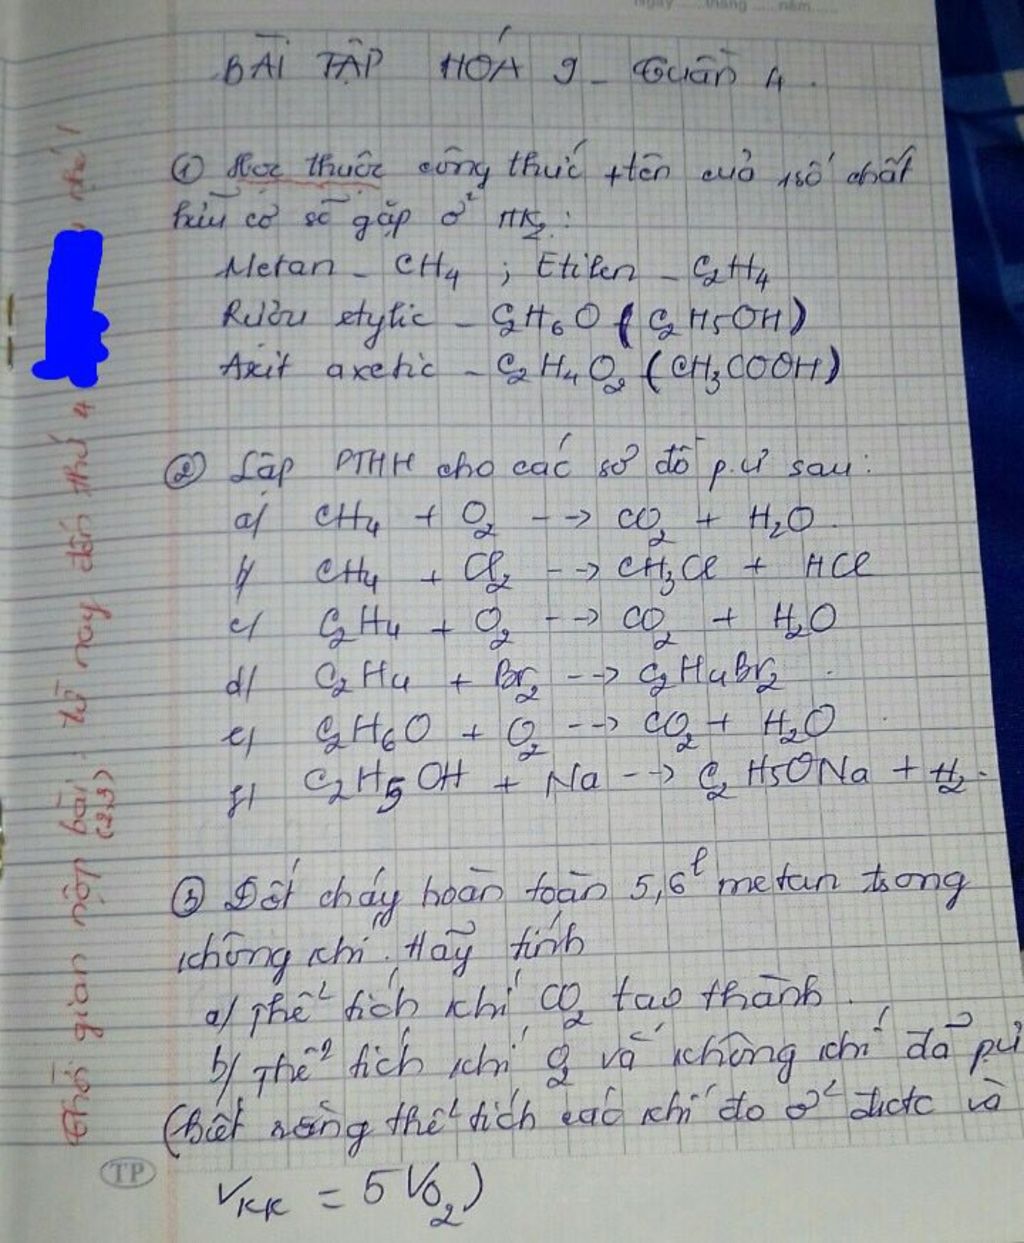 Ngày ..... tháng ..... năm......
BÀI TẬP HOÁ 9 - Tuần 4.
① Học thuộc công thức + tên của 1 số chất
hữu cơ sẽ gặp ở HK2:
Metan - CH4 ; Etilen - C2H4
Rượu etylic - C2H6O (C2H5OH)
Axit axetic - C2H4O2 (CH3COOH)
② Lập PTHH cho các sơ đồ p.ứ sau:
a/ CH4 + O2 --> CO2 + H2O
b/ CH4 + Cl2 --> CH3Cl + HCl
c/ C2H4 + O2 --> CO2 + H2O
d/ C2H4 + Br2 --> C2H4Br2
e/ C2H6O + O2 --> CO2 + H2O
f/ C2H5OH + Na --> C2H5ONa + H2.
③ Đốt cháy hoàn toàn 5,6l metan trong
không khí. Hãy tính
a/ Thể tích khí CO2 tạo thành.
b/ Thể tích khí O2 và không khí đã pứ
(biết rằng thể tích các khí đo ở đktc và
VKK = 5VO2)
Thời gian nộp bài: từ nay đến thứ 4
(2,3)
TP